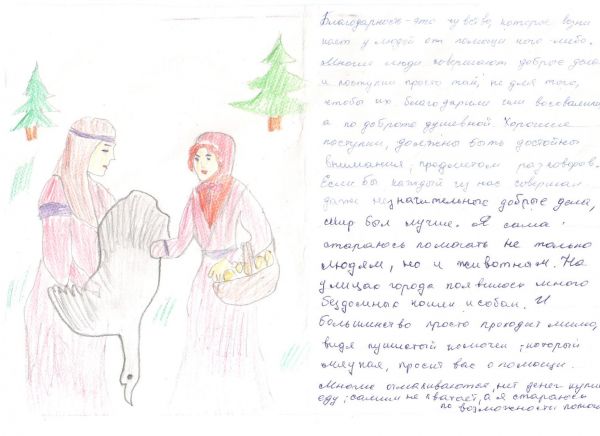 Благодарность - это чувство, которое возни
кает у людей от помощи кого-либо.
Многие люди совершают добрые дела
и поступки просто так, не для того,
чтобы их благодарили или восхваляли,
а по доброте душевной. Хорошие
поступки, должны быть достойны
внимания, предметом разговоров.
Если бы каждый из нас совершал
даже незначительные добрые дела,
мир был лучше. Я сама
стараюсь помогать не только
людям, но и животным. На
улицах города появилось много
бездомных кошек и собак. И
большинство просто проходит мимо,
видя пушистый комочек, который
мяукая, просит вас о помощи.
Многие отмахиваются, нет денег купить
еду, самим не хватает, а я стараюсь
по возможности помо